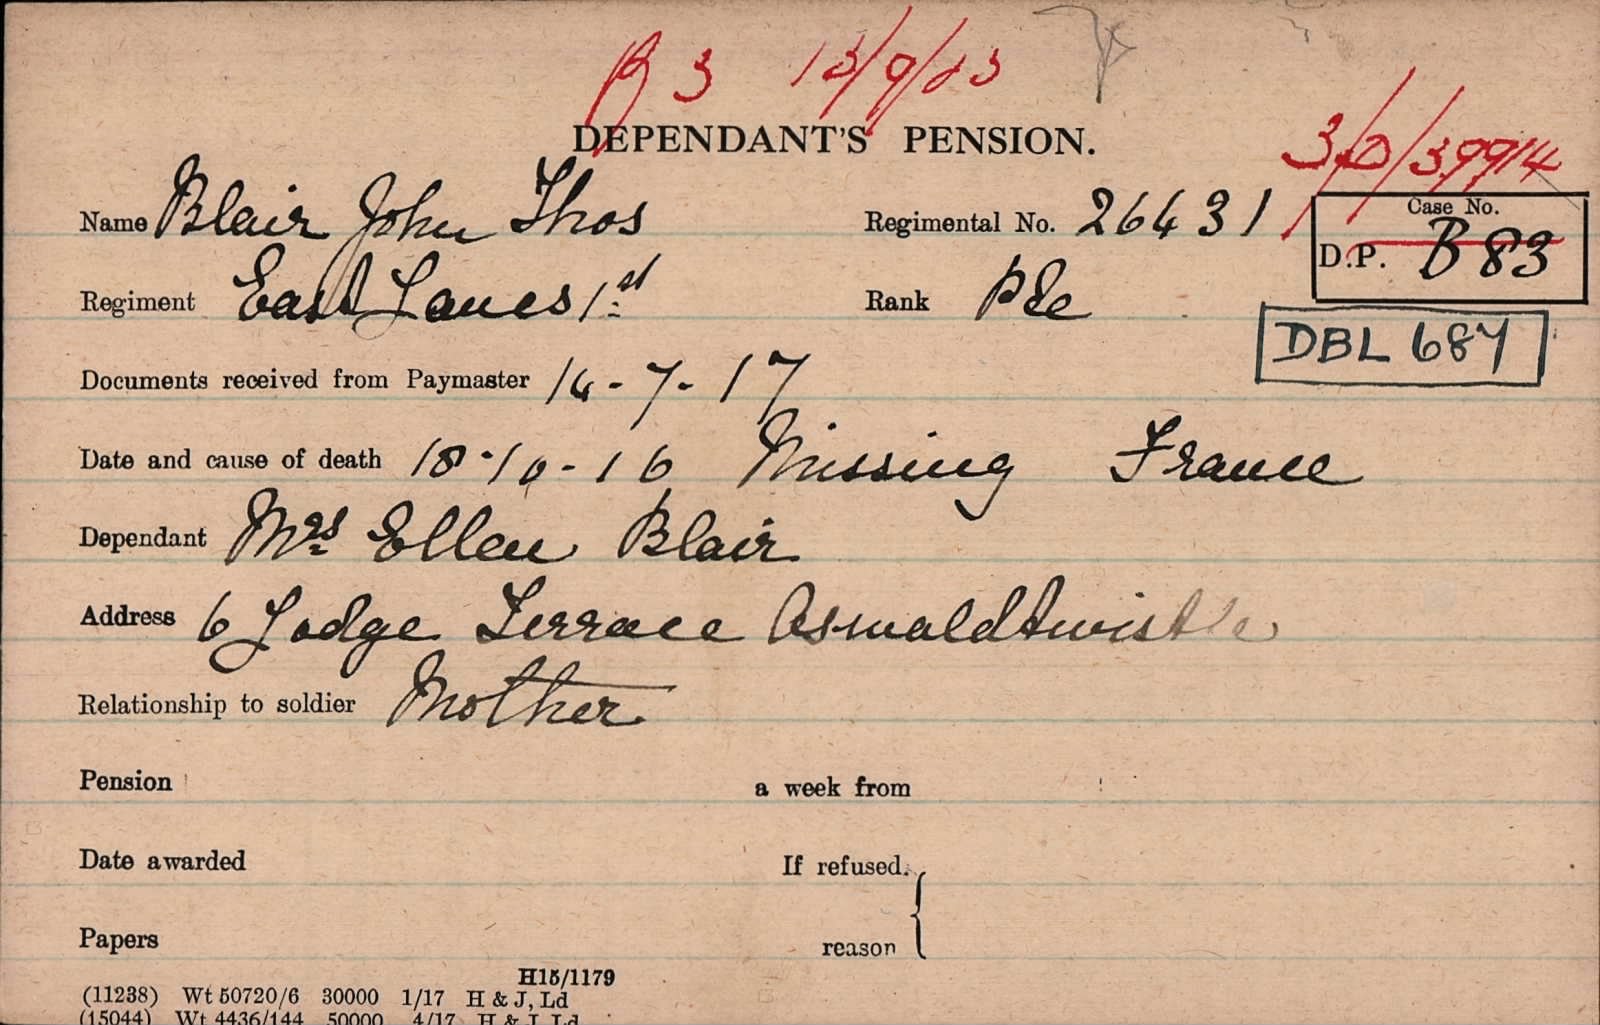 B 3 13/9/23
DEPENDANT'S PENSION.
3/D/39914
Name Blair John Thos
Regimental No. 26431
Case No.
D.P. B 83
Regiment East Lancs 1st
Rank Pte
DBL 687
Documents received from Paymaster 14-7-17
Date and cause of death 18-10-16 Missing France
Dependant Mrs Ellen Blair
Address 6 Lodge Terrace Oswaldtwistle
Relationship to soldier Mother
Pension a week from
Date awarded If refused.
Papers reason
H15/1179
(11238) Wt 50720/6 30000 1/17 H & J, Ld
(15044) Wt 4436/144 50000 4/17 H & J, Ld